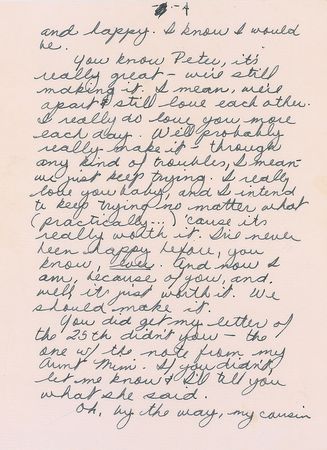 -4
and happy. I know I would
be.
You know Peter, it's
really great - we're still
making it. I mean, we're
apart & still love each other.
I really do love you more
each day. We'll probably
really make it through
any kind of troubles, I mean -
we just keep trying. I really
love you baby, and I intend
to keep trying no matter what
(practically...) 'cause it's
really worth it. I've never
been happy before, you
know, ever. And now I
am, because of you, and,
well, it's just worth it. We
should make it.
You did get my letter of
the 25th didn't you - the
one w/ the note from my
Aunt Mim. If you didn't,
let me know & I'll tell you
what she said.
Oh, by the way, my cousin